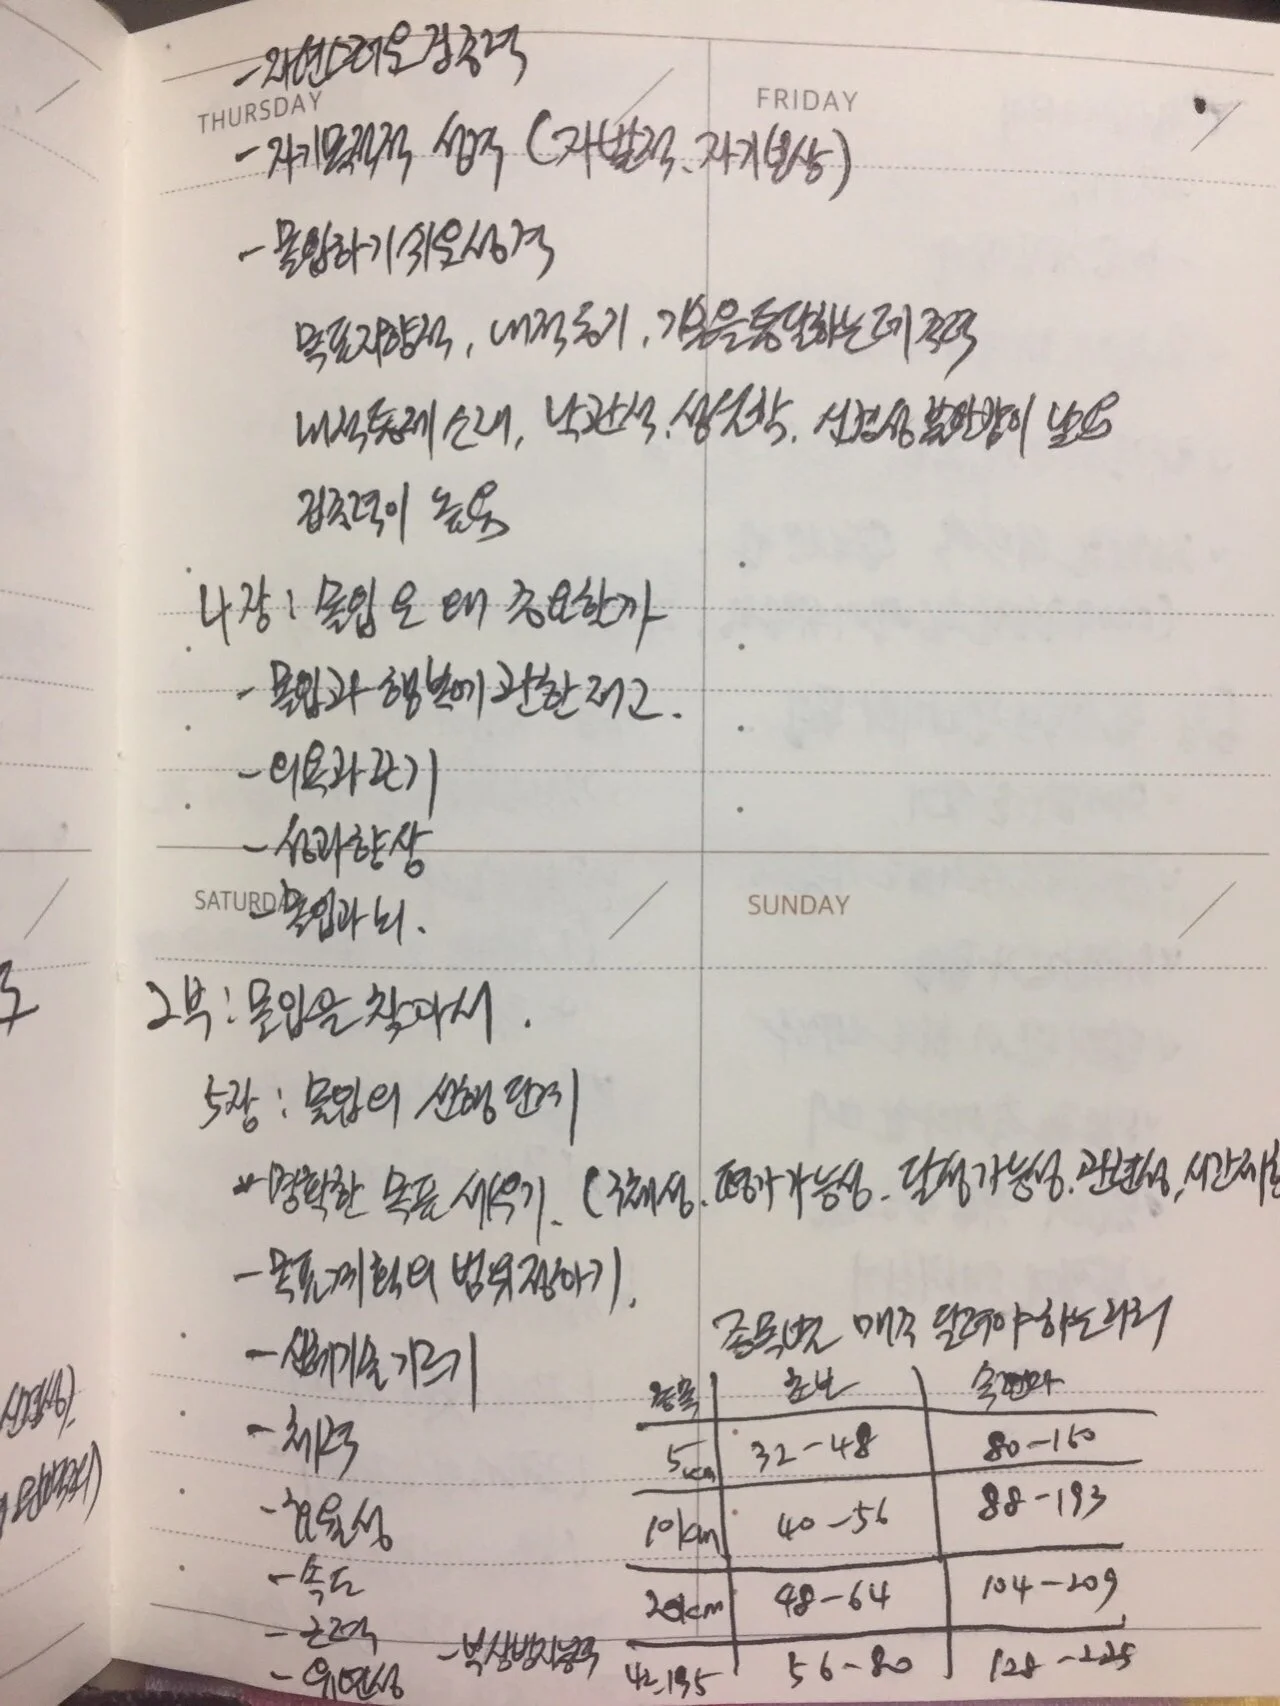 - 자연스러운 집중력
THURSDAY
FRIDAY
- 자기목적적 성격 (자발적, 자기보상)
- 몰입하기 쉬운 성격
목표지향적, 내적동기, 기술을 통달하는데 주력
내적통제 소재, 낙관적, 성실함, 신경성 불안감이 낮음
집중력이 높음
4장 : 몰입은 왜 중요한가
- 몰입과 행복에 관한 재고.
- 의욕과 끈기
- 성과향상
SATURDAY
SUNDAY
- 몰입과 뇌.
2부 : 몰입을 찾아서.
5장 : 몰입의 선행 단계
* 명확한 목표 세우기. (구체성, 평가가능성, 달성가능성, 관련성, 시간제한
- 목표계획의 범위정하기.
- 신체기술 기르기
- 체력
- 효율성
- 속도
- 근력
- 유연성
- 부상방지능력
종목별 매주 달려야 하는 거리
종목 초보 숙련자
5km 32-48 80-160
10km 40-56 88-193
20km 48-64 104-209
42.195 56-80 128-225